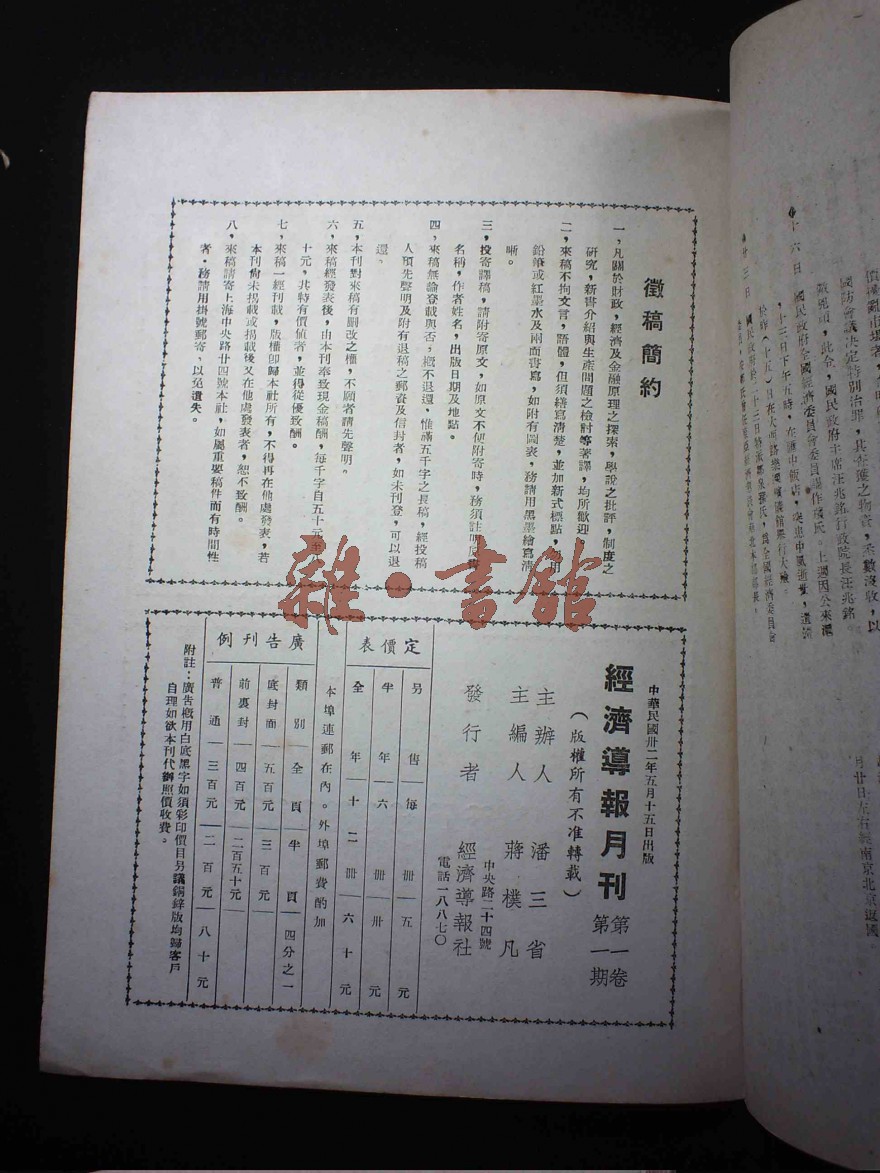 徵稿簡約
一，凡關於財政，經濟及金融原理之探索，學說之批評，制度之
研究，新書介紹與生產問題之檢討等著譯，均所歡迎
二，來稿不拘文言，語體，但須繕寫清楚，並加新式標點，勿用
鉛筆或紅墨水及兩面書寫，如附有圖表，務請用黑墨繪寫清
晰。
三，投寄譯稿，請附寄原文，如原文不便附寄時，務須註明原書
名稱，作者姓名，出版日期及地點。
四，來稿無論登載與否，概不退還，惟滿五千字之長稿，經投稿
人預先聲明及附有退稿之郵資及信封者，如未刊登，可以退
還。
五，本刊對來稿有刪改之權，不願者請先聲明。
六，來稿經發表後，由本刊奉致現金稿酬，每千字自五十元至
十元，其特有價値者，並得從優致酬。
七，來稿一經刊載，版權卽歸本社所有，不得再在他處發表，若
本刊尙未揭載或揭載後又在他處發表者，恕不致酬。
八，來稿請寄上海中央路廿四號本社，如屬重要稿件而有時間性
者，務請用掛號郵寄，以免遺失。
中華民國卅二年五月十五日出版
經濟導報月刊 第一卷 第一期
（版權所有不准轉載）
主辦人 潘三省
主編人 蔣樸凡
發行者 經濟導報社
中央路二十四號
電話一八八七〇
定價表
另售每冊五元
半年六冊卅元
全年十二冊六十元
本埠連郵在內。外埠郵費酌加
廣告刊例
類別 全頁 半頁 四分之一
底封面 五百元 三百元
前裏封 四百元 二百五十元
普通 三百元 二百元 八十元
附註：廣告概用白底黑字如須彩印價目另議銅鋅版均歸客戶
自理如欲本刊代辦照價收費。
國防會議决定特別治罪，其弃藏之物資，悉數沒收，以
此令，國民政府主席汪兆銘行政院長汪兆銘
十六日 國民政府全國經濟委員會委員
月廿日左右經南京北京返國
雜·書館